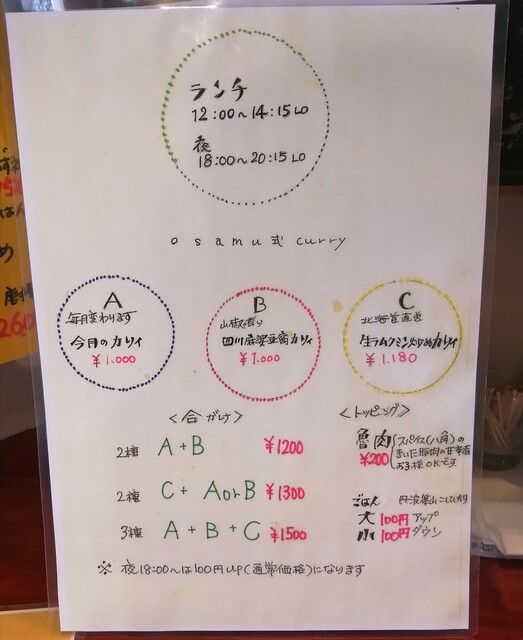 ランチ
12:00～14:15 LO
夜
18:00～20:15 LO
osamu式curry
A
毎月変わります
今月のカリィ
￥1.000
B
山椒香り
四川麻婆豆腐カリィ
￥1.000
C
北海道直営
生ラムクミン炒めカリィ
￥1.180
＜合がけ＞
2種 A+B ￥1200
2種 C+ AorB ￥1300
3種 A+B+C ￥1500
＜トッピング＞
魯肉
￥200
スパイス(八角)の
きいた豚肉の甘辛煮
ごはん 丹波篠山こしひかり
大 100円 アップ
小 100円 ダウン
※ 夜18:00～は100円UP(通常価格)になります
め